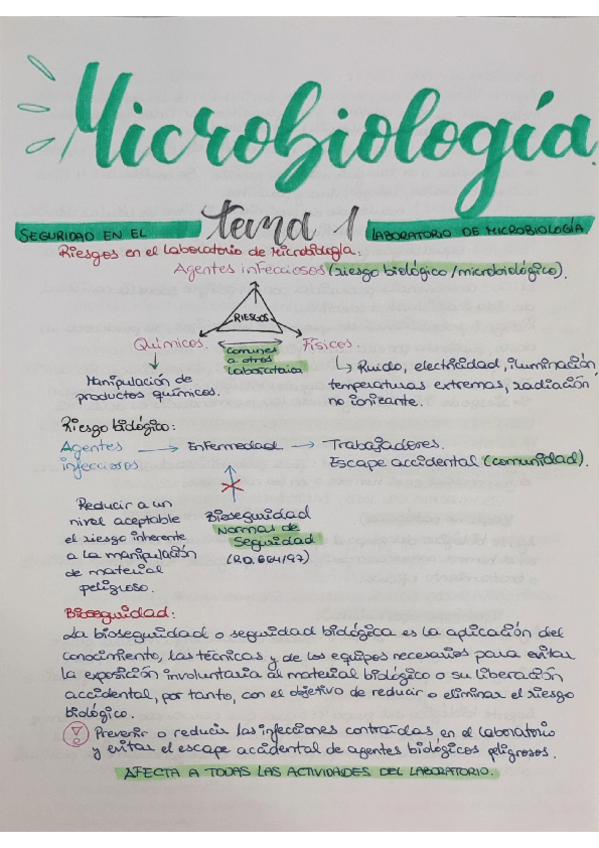 Microbiología.
SEGURIDAD EN EL tema 1 LABORATORIO DE MICROBIOLOGÍA
Riesgos en el laboratorio de Microbiología:
Agentes infecciosos (riesgo biológico/microbiológico).
RIESGOS
Químicos. Físicos.
comunes
a otros
laboratorios
Manipulación de
productos químicos.
Ruido, electricidad, iluminación,
temperaturas extremas, radiación
no ionizante.
Riesgo biológico:
Agentes infecciosos → Enfermedad → Trabajadores.
Escape accidental (comunidad).
Reducir a un
nivel aceptable
el riesgo inherente
a la manipulación
de material
peligroso.
Bioseguridad
Normas de
Seguridad
(RD.664/97)
Bioseguridad:
La bioseguridad o seguridad biológica es la aplicación del
conocimiento, las técnicas y de los equipos necesarios para evitar
la exposición involuntaria al material biológico o su liberación
accidental, por tanto, con el objetivo de reducir o eliminar el riesgo
biológico.
Prevenir o reducir las infecciones contraídas en el laboratorio
y evitar el escape accidental de agentes biológicos peligrosos.
AFECTA A TODAS LAS ACTIVIDADES DEL LABORATORIO.